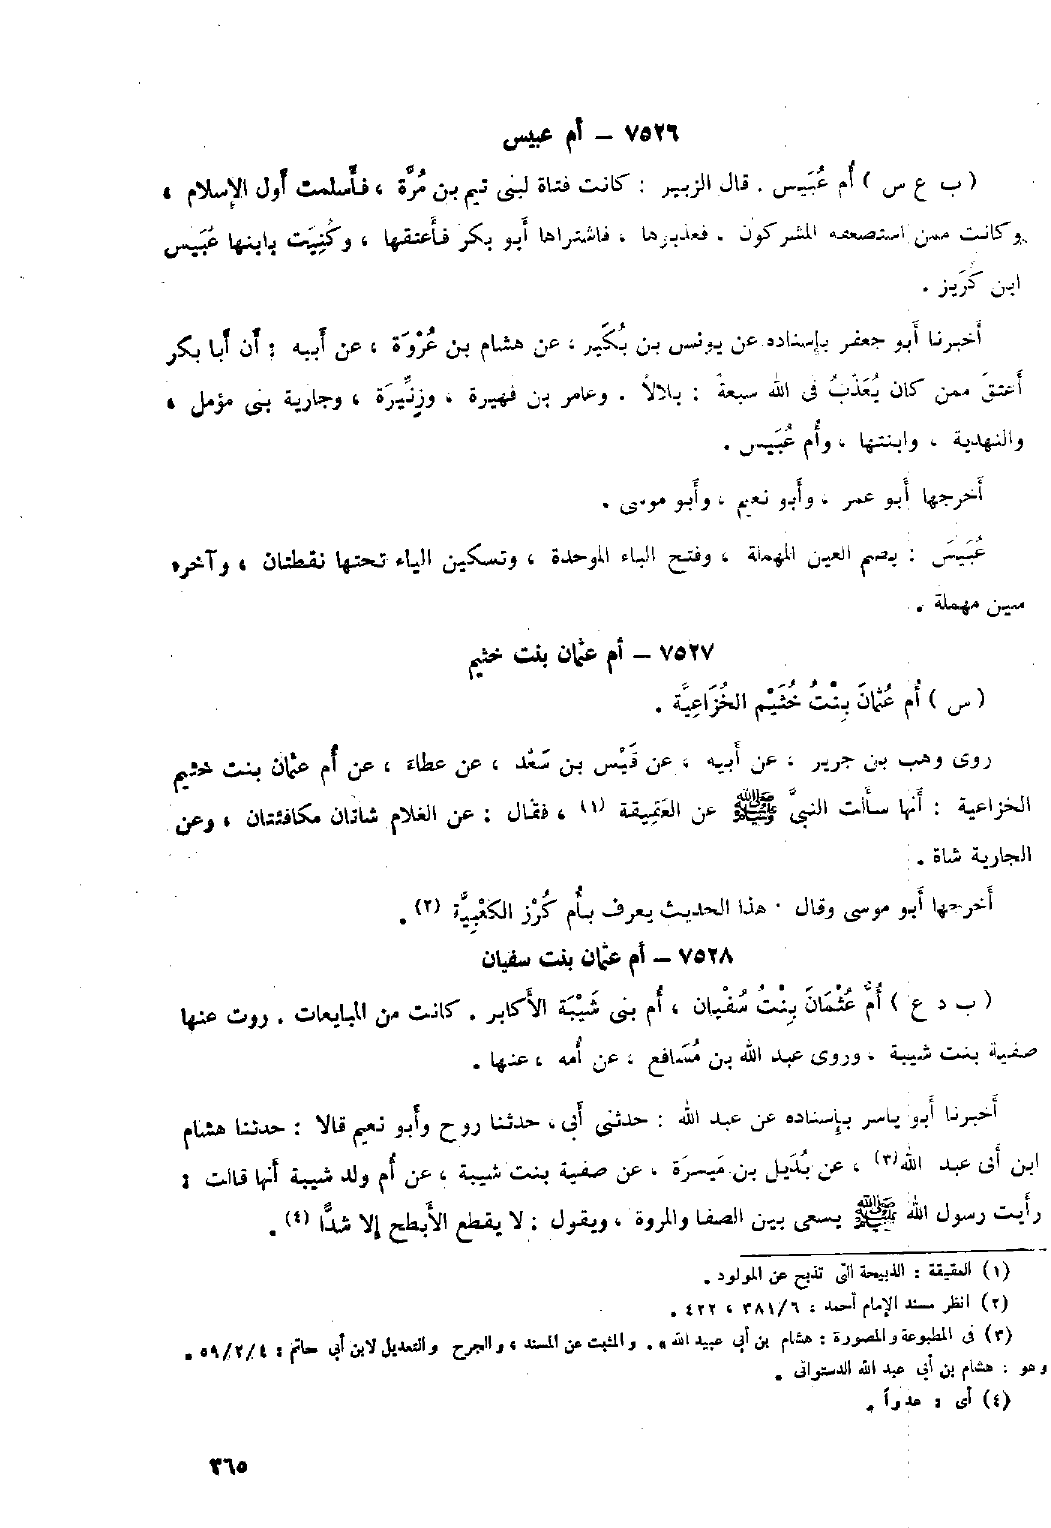 ٧٥٢٦ – أم عبيس
( ب ع س ) أُم عُبَيس . قال الزبير : كانت فتاة لبنى تيم بن مُرَّة ، فأَسلمت أَول الإِسلام ،
وكانت ممن استضعفه المشركون . فعذبوها ، فاشتراها أَبو بكر فأَعتقها ، وكُنِيَت بابنها عُبَيس
ابن كُرَيز .
أَخبرنا أَبو جعفر بإِسناده عن يونس بن بُكَير ، عن هشام بن عُرْوَة ، عن أَبيه : أَن أَبا بكر
أَعتقَ ممن كان يُعَذَّبُ فى الله سبعةً : بلالاً . وعامر بن فهيرة ، وزِنِّيرَة ، وجارية بنى مؤمل ،
والنهدية ، وابنتها ، وأُم عُبَيس .
أَخرجها أَبو عمر ، وأَبو نعيم ، وأَبو موسى .
عُبَيسَ : بضم العين المهملة ، وفتح الباء الموحدة ، وتسكين الياء تحتها نقطتان ، وآخره
سين مهملة .
٧٥٢٧ – أم عثمان بنت خثيم
( س ) أُم عُثمانَ بِنْتُ خُثَيْم الخُزَاعِيَّة .
روى وهب بن جرير ، عن أَبيه ، عن قَيْس بن سَعْد ، عن عطاءَ ، عن أُم عثمان بنت خثيم
الخزاعية : أَنها سأَلت النبىَّ ﷺ عن العَقِيقة (١) ، فقال : عن الغلام شاتان مكافئتان ، وعن
الجارية شاة .
أَخرجها أَبو موسى وقال . هذا الحديث يعرف بأُم كُرْز الكَعْبِيَّة (٢) .
٧٥٢٨ – أم عثمان بنت سفيان
( ب د ع ) أُمّ عُثْمَانَ بِنْتُ سُفْيان ، أُم بنى شَيْبَة الأَكابر . كانت من المبايعات . روت عنها
صفية بنت شيبة . وروى عبد الله بن مُسَافع ، عن أُمه ، عنها .
أَخبرنا أَبو ياسر بإِسناده عن عبد الله : حدثنى أَبى ، حدثنا روح وأَبو نعيم قالا : حدثنا هشام
ابن أَبى عبد الله(٣) ، عن بُدَيل بن مَيسرَة ، عن صفية بنت شيبة ، عن أُم ولد شيبة أَنها قالت :
رأَيت رسول الله ﷺ يسعى بين الصفا والمروة ، ويقول : لا يقطع الأَبطح إِلا شدًّا (٤) .
(١) العقيقة : الذبيحة التى تذبح عن المولود .
(٢) انظر مسند الإمام أحمد : ٣٨١/٦ ، ٤٢٢ .
(٣) فى المطبوعة والمصورة : هشام بن أبى عبيد الله » . والمثبت عن المسند ، والجرح والتعديل لابن أبى حاتم : ٥٩/٢/٤ .
وهو : هشام بن أبى عبد الله الدستوائى .
(٤) أى : عدواً .
٣٦٥